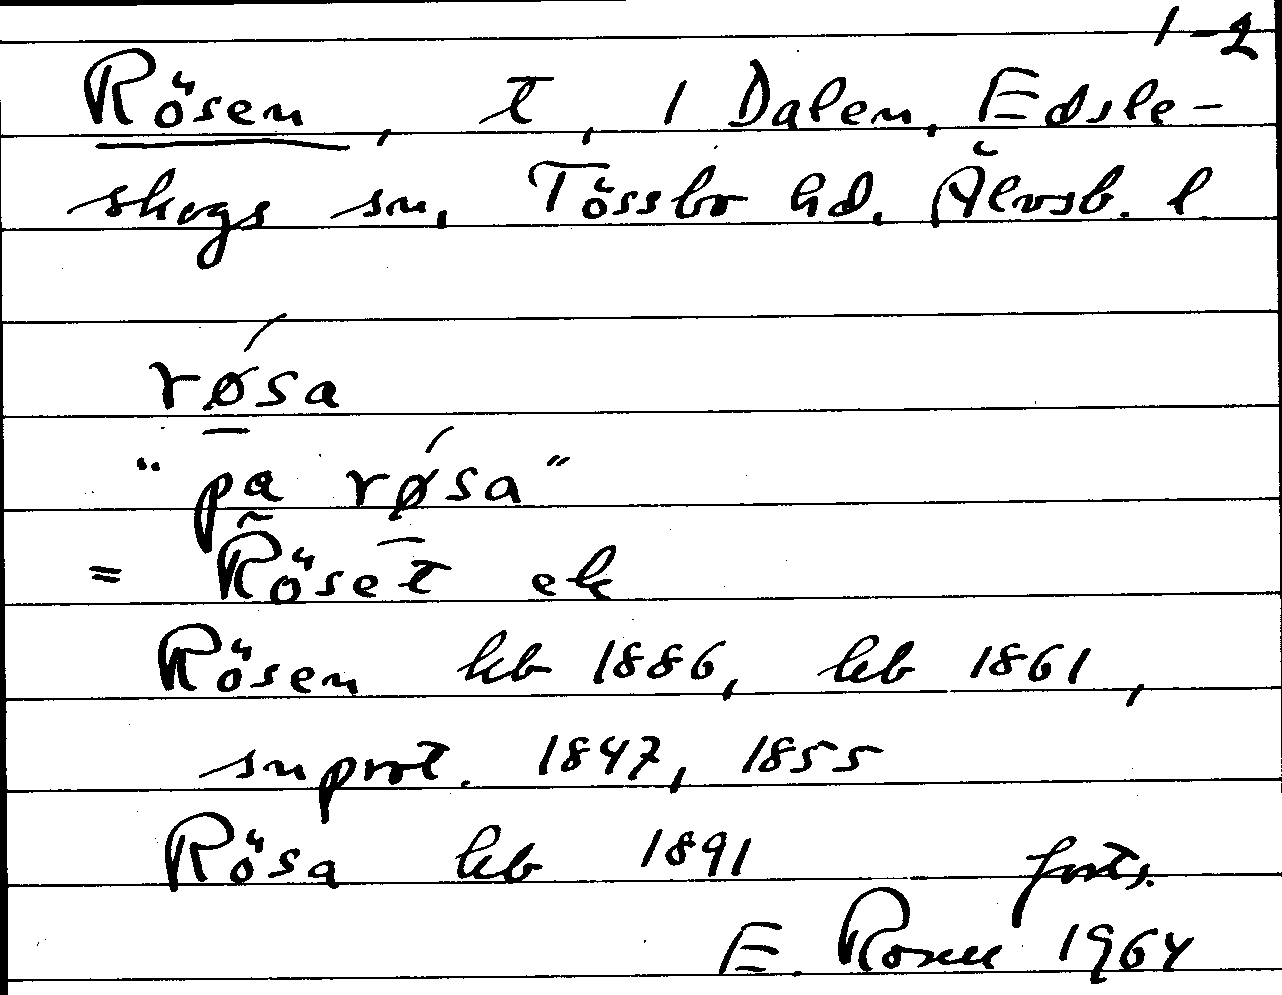 1-2
Rösen, t, 1 Dalen, Edsle-
skogs sn, Tössbo hd. Älvsb. l
røsa
"på røsa"
= Röset ek
Rösen kb 1886, kb 1861,
snprot. 1847, 1855
Rösa kb 1891 forts.
E. Rosell 1964